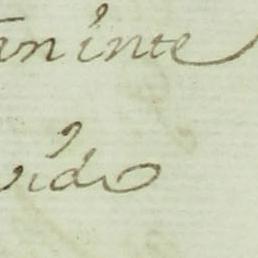 aninte
vido